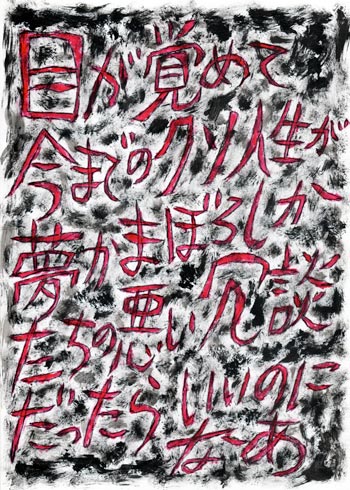 目が覚めて
今までのクソ人生が
夢かまぼろしか
たちの悪い冗談
だったらいいのに
なあ